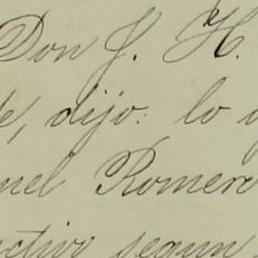 Don J. H.
e, dijo: lo
uel Romero
ctivo segun